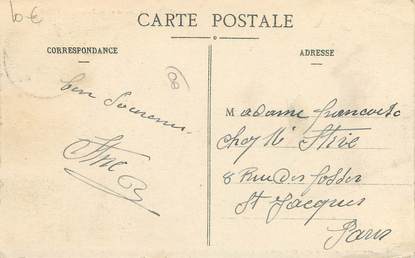 10 €
CARTE POSTALE
CORRESPONDANCE
ADRESSE
bon Souvenir
Madame
Chez Mr
8 Rue des Fossés
St Jacques
Paris